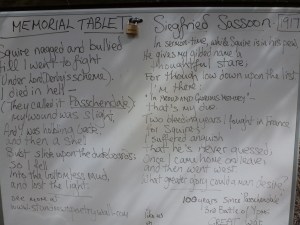 MEMORIAL TABLET
Squire nagged and bullied
till I went to fight
Under Lord Derby's scheme.
I died in hell -
(They called it Passchendale)
my wound was slight,
And I was hobbling back
and then a shell
Burst slick upon the duckboards:
so I fell
Into the bottomless mud,
and lost the light.
Siegfried Sassoon
In sermon time, while Squire is in his pew,
He gives my gilded name a
thoughtful stare;
For though low down upon the list
I'm there
"In proud and Glorious Memory" -
that's my due
Two bleeding years I fought in France
for Squire
I suffered anguish
that he's never guessed
Once I came home on leave
and then went west
What greater glory could a man desire?
100 years since Passchendale
3rd Battle of Ypres